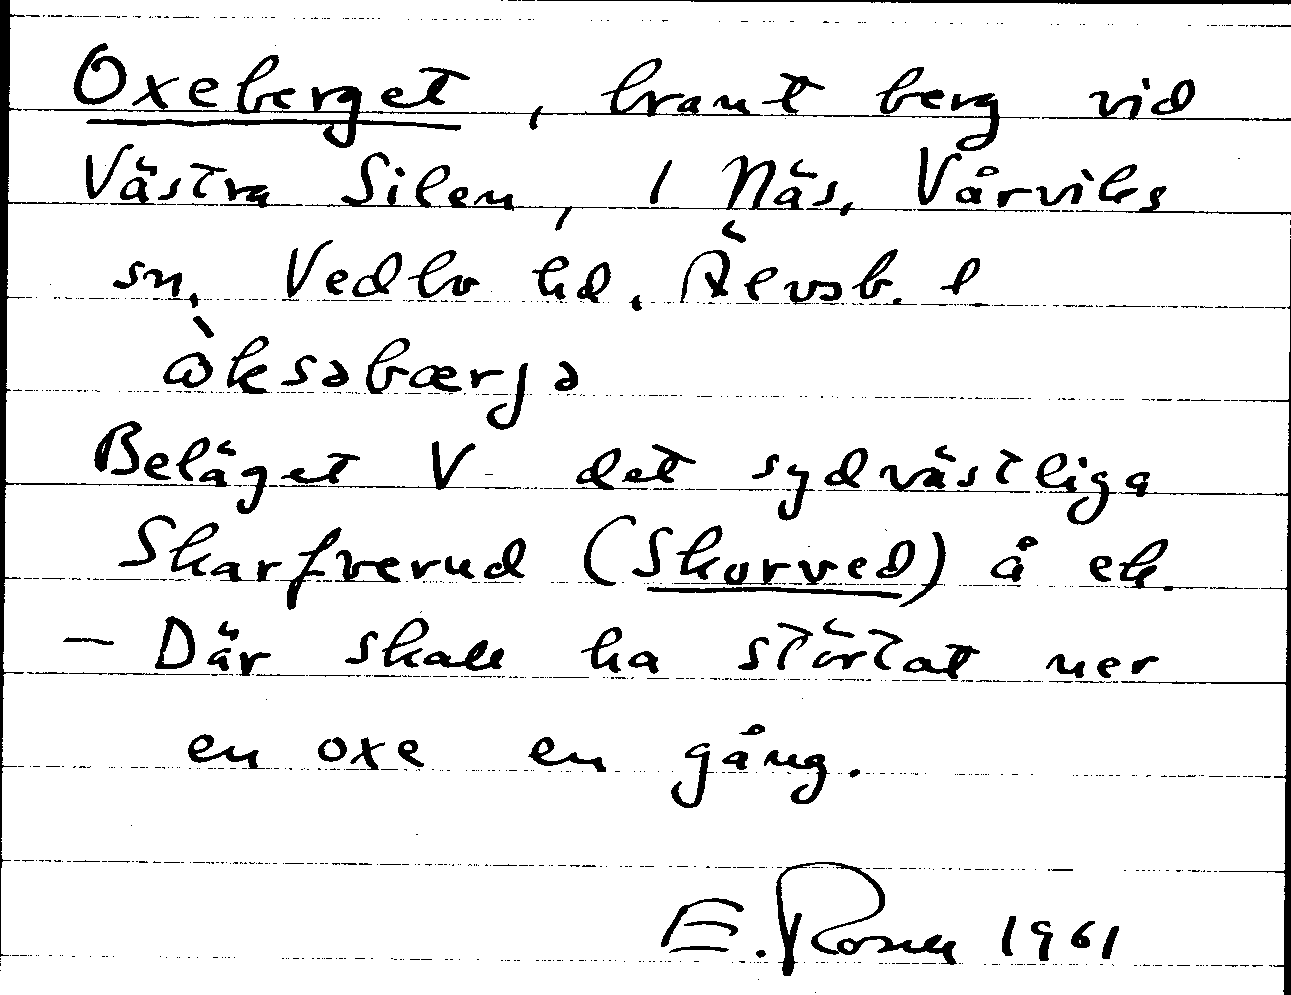 Oxeberget, brant berg vid
Västra Silen, 1 Näs, Vårviks
sn, Vedbo hd. Älvsb. l.
ɷ̀ksəbærjə
Beläget V det sydvästliga
Skarfverud (Skorved) å ek.
– Där skall ha störtat ner
en oxe en gång.
E. Rosen 1961